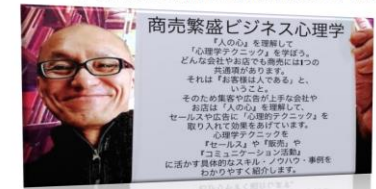 商売繁盛ビジネス心理学
『人の心』を理解して
「心理学テクニック」を学ぼう。
どんな会社やお店でも商売には1つの
共通項があります。
それは『お客様は人である』と、
いうこと。
そのため集客や広告が上手な会社や
お店は「人の心」を理解して、
セールスや広告に「心理的テクニック」を
取り入れて効果をあげています。
心理学テクニックを
『セールス』や『販売』や
『コミュニケーション活動』
に活かす具体的なスキル・ノウハウ・事例を
わかりやすく紹介します。